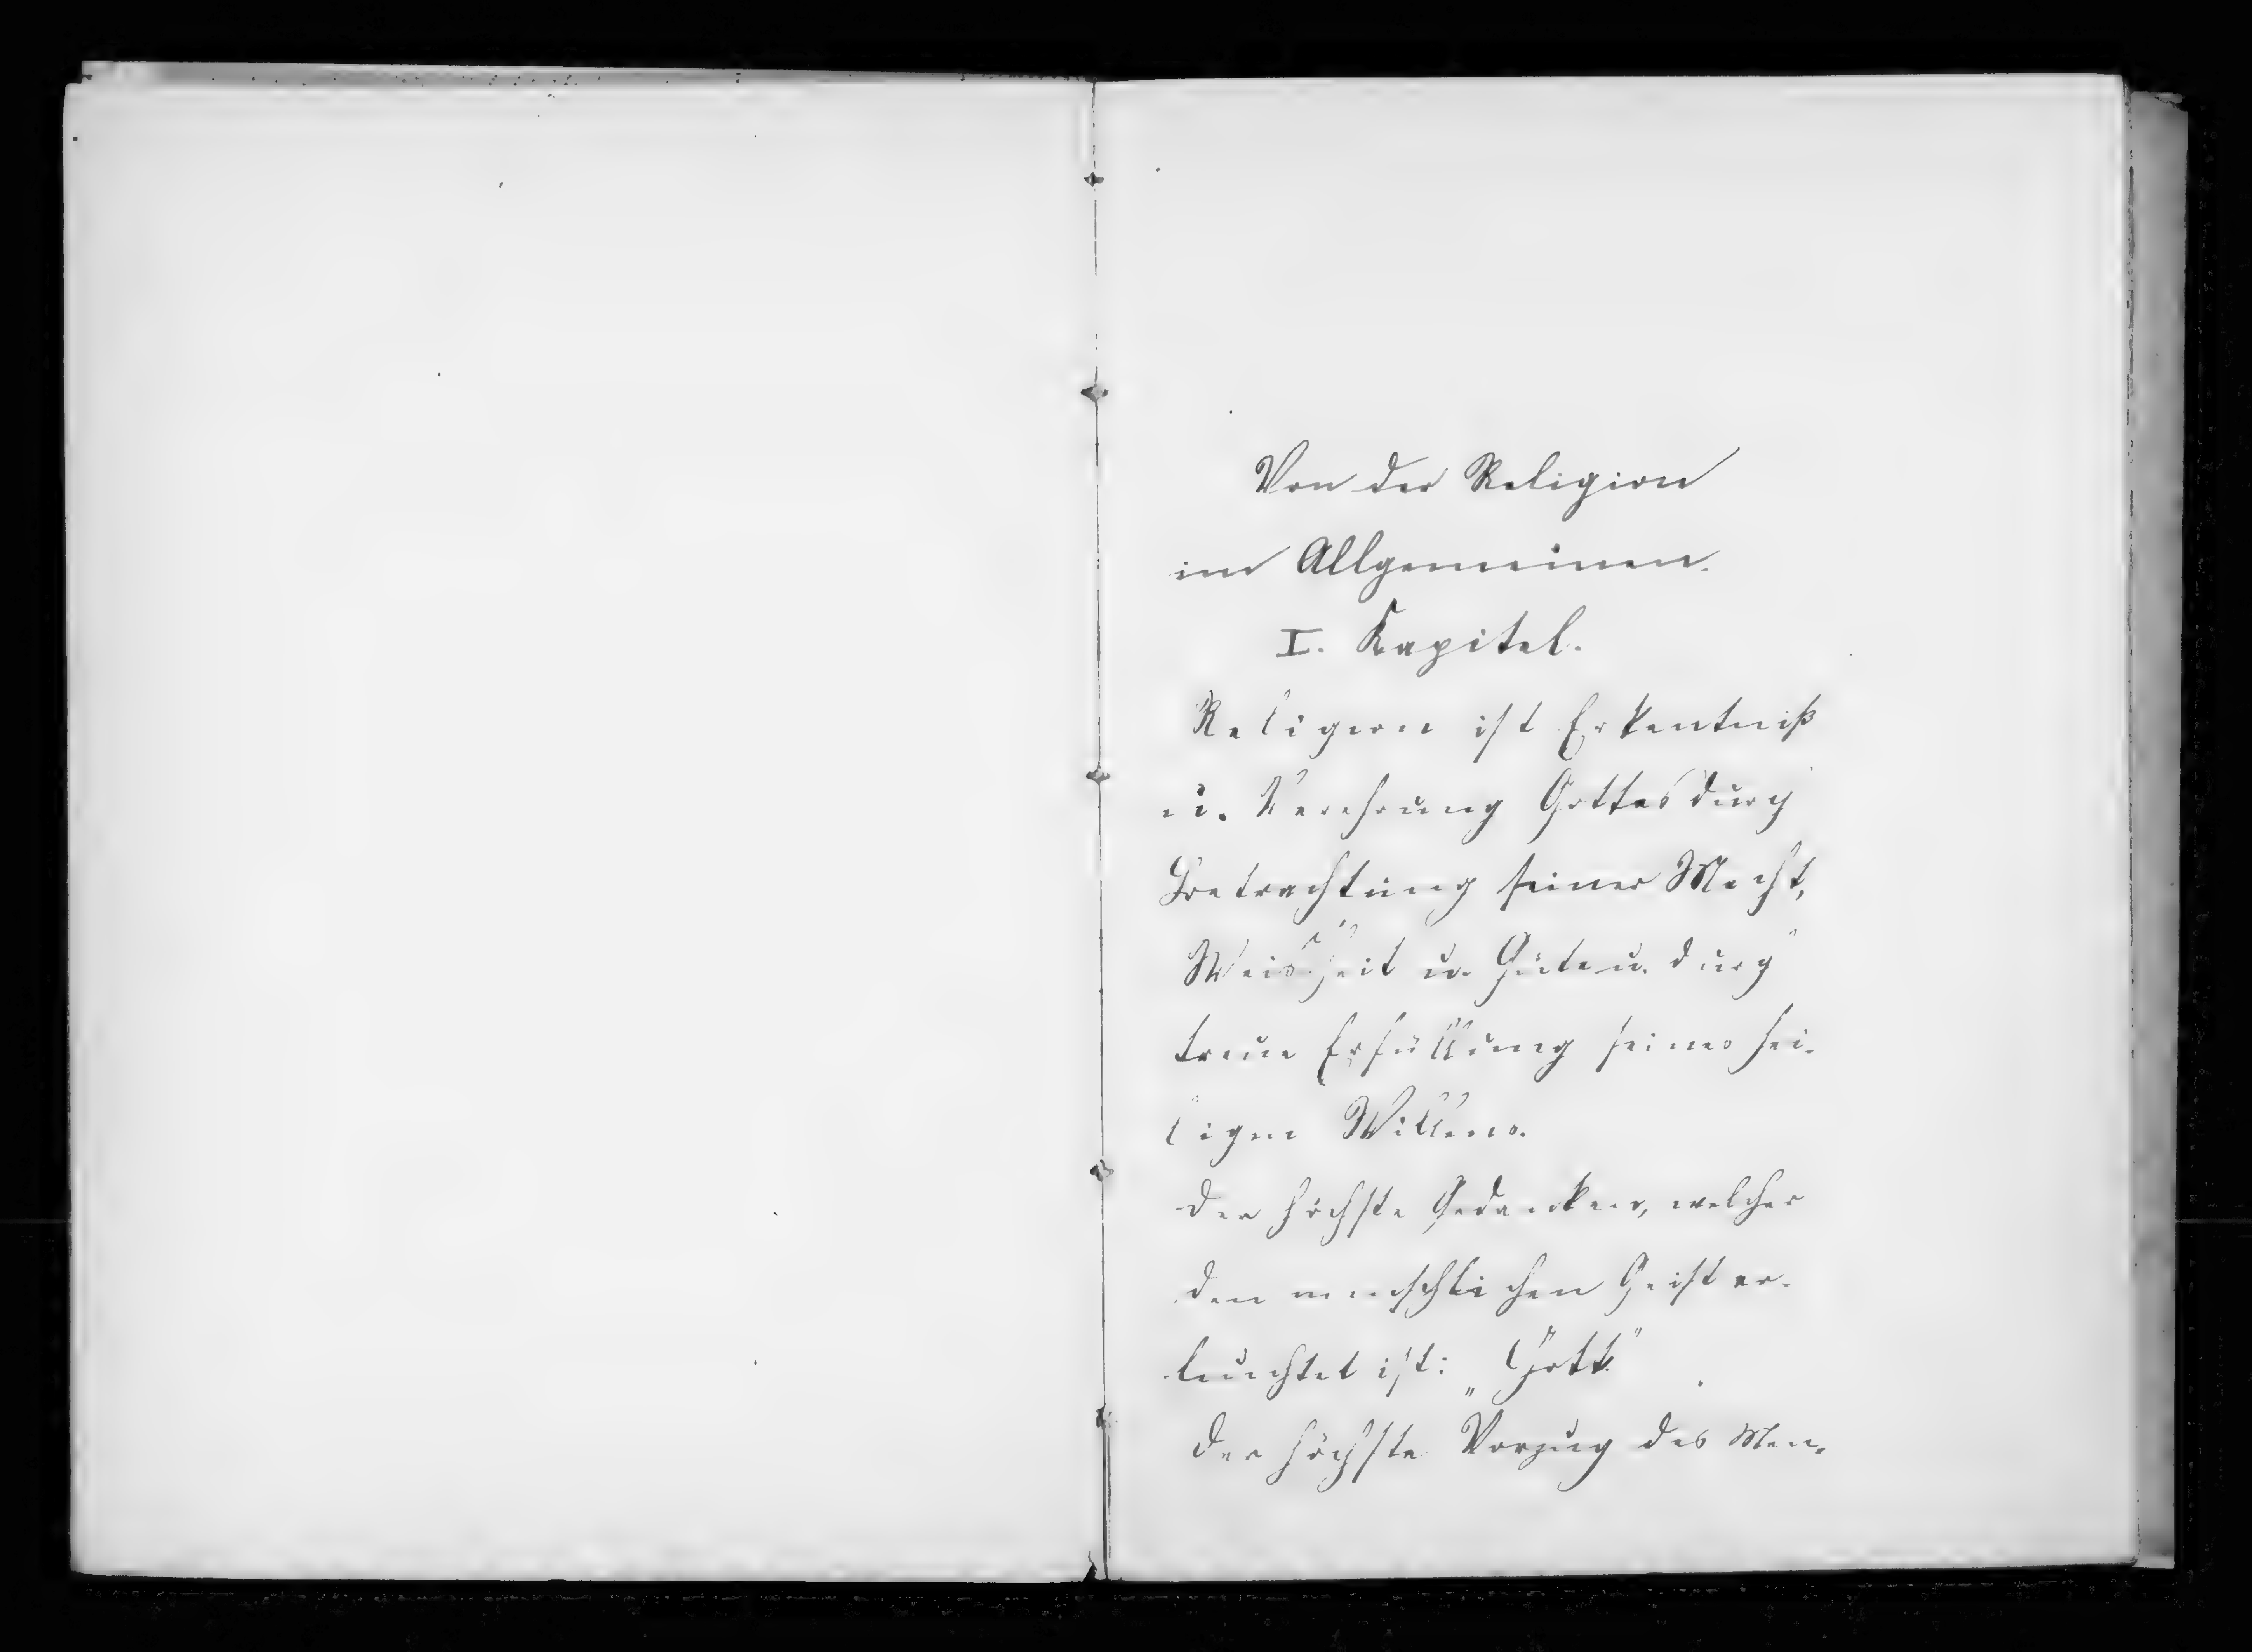 Von der Religion
im Allgemeinen.
I. Kapitel.
Religion ist Erkentniß
u. Verehrung Gottes durch
Betrachtung seiner Macht,
Weisheit u. Güte u. durch
treue Erfüllung seines hei-
ligen Willens.
Der höchste Gedanken, welcher
den menschlichen Geist er-
leuchtet ist: „Gott."
Der höchste Vorzug des Men-